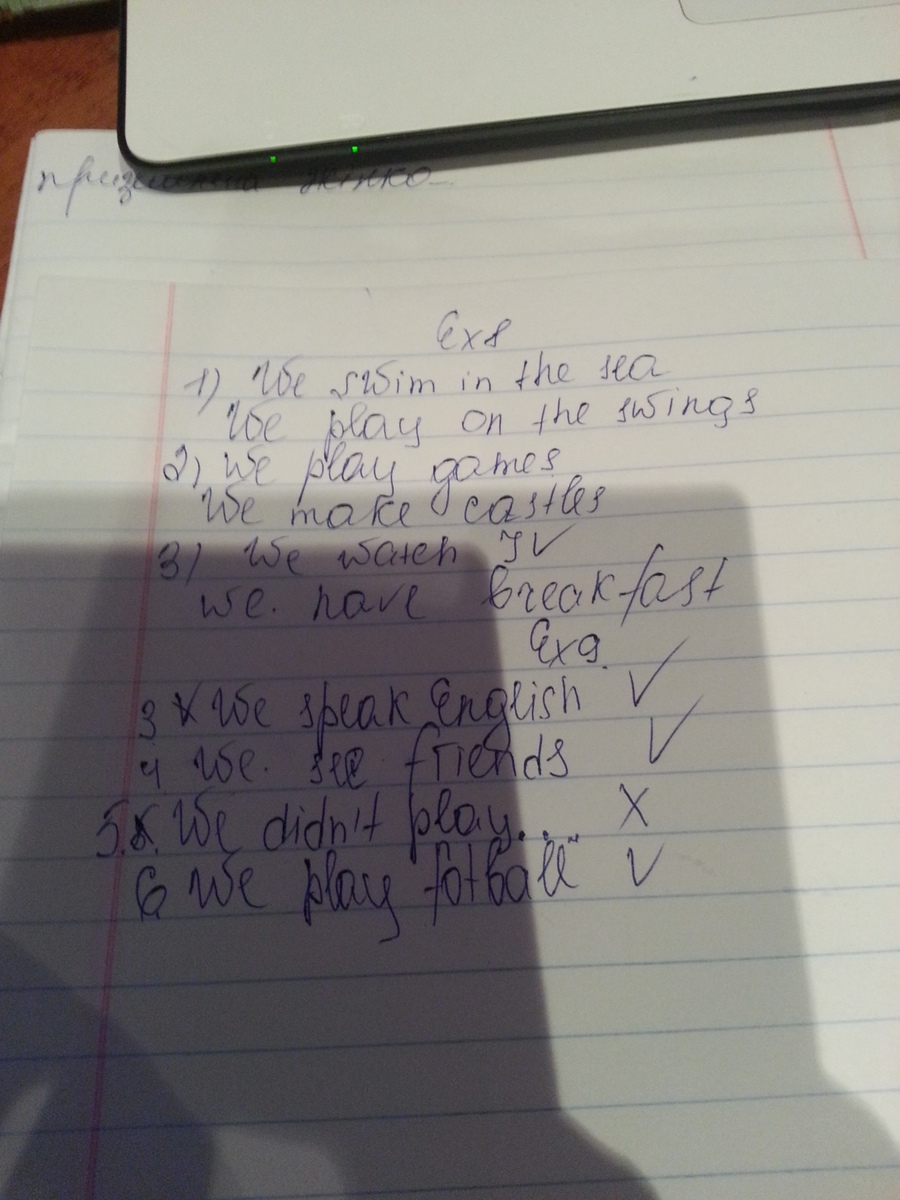 Ex 8
1) We swim in the sea
We play on the swings
2) We play games
We make castles
3) We watch TV
We. have breakfast
Ex 9.
3 We speak English ✓
4 We. see friends ✓
5. We didn't play... X
6 We play fotball ✓